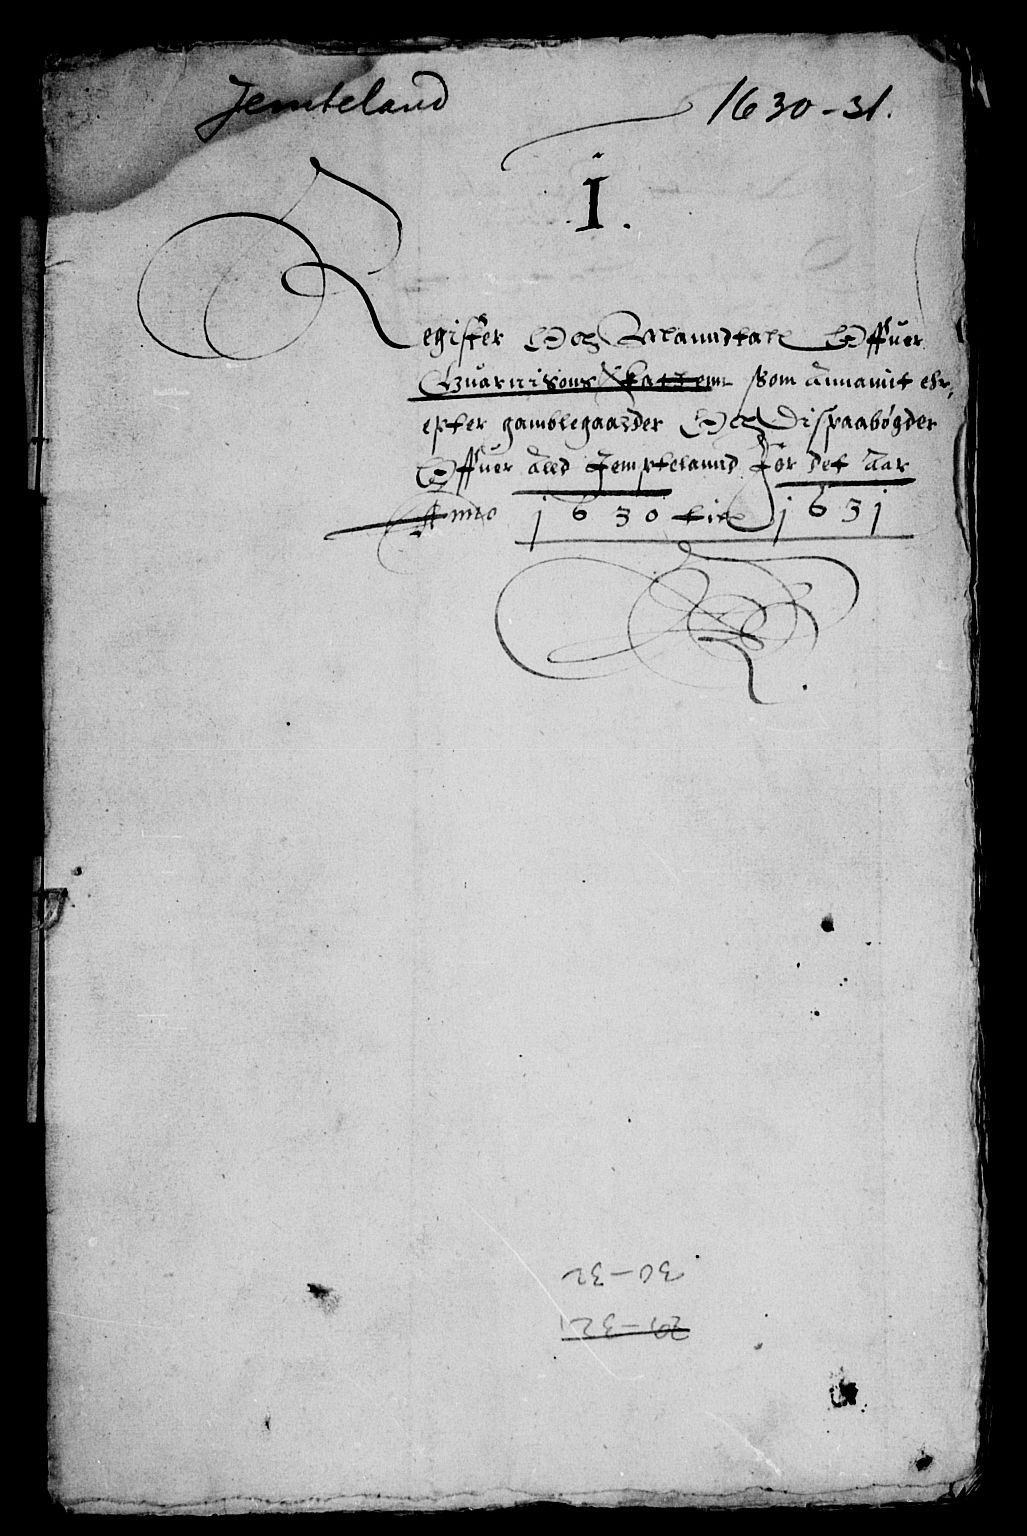 Jemteland 1630-31.
I.
Register Och Manndtall Offuer
Guarnisons Skattenn som Annamit ehr,
epter gamblegaarder Och Dispaabøgder
Offuer Ald Jemptelannd For det Aar
Anno 1630 till 1631
30-32
29-32